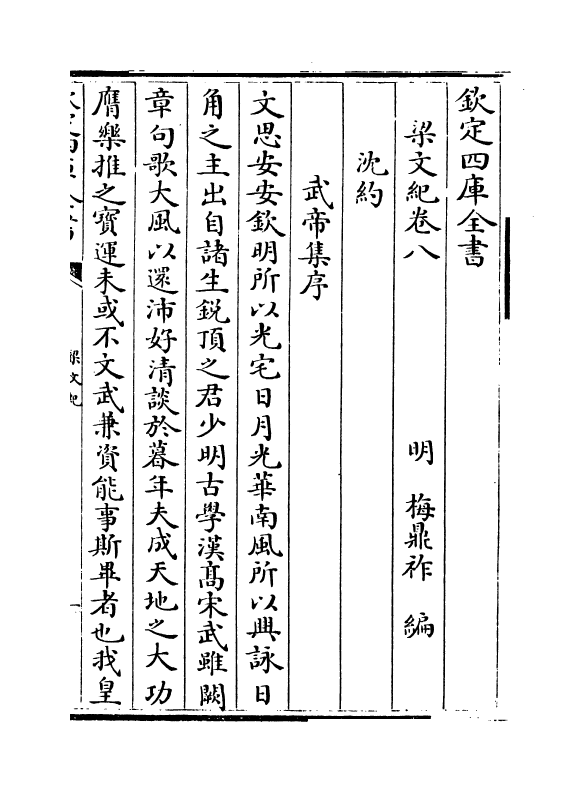 欽定四庫全書
梁文紀卷八
明 梅鼎祚 編
沈約
武帝集序
文思安安欽明所以光宅日月光華南風所以興詠日
角之主出自諸生銳頂之君少明古學漢髙宋武雖闕
章句歌大風以還沛好清談於暮年夫成天地之大功
膺樂推之寳運未或不文武兼資能事斯畢者也我皇
梁文紀
一